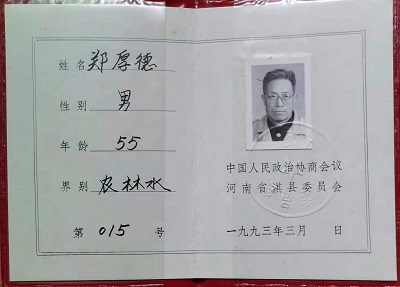 姓名 郑厚德
性别 男
年龄 55
界别 农林水
第 015 号
中国人民政治协商会议
河南省淇县委员会
一九九三年三月 日